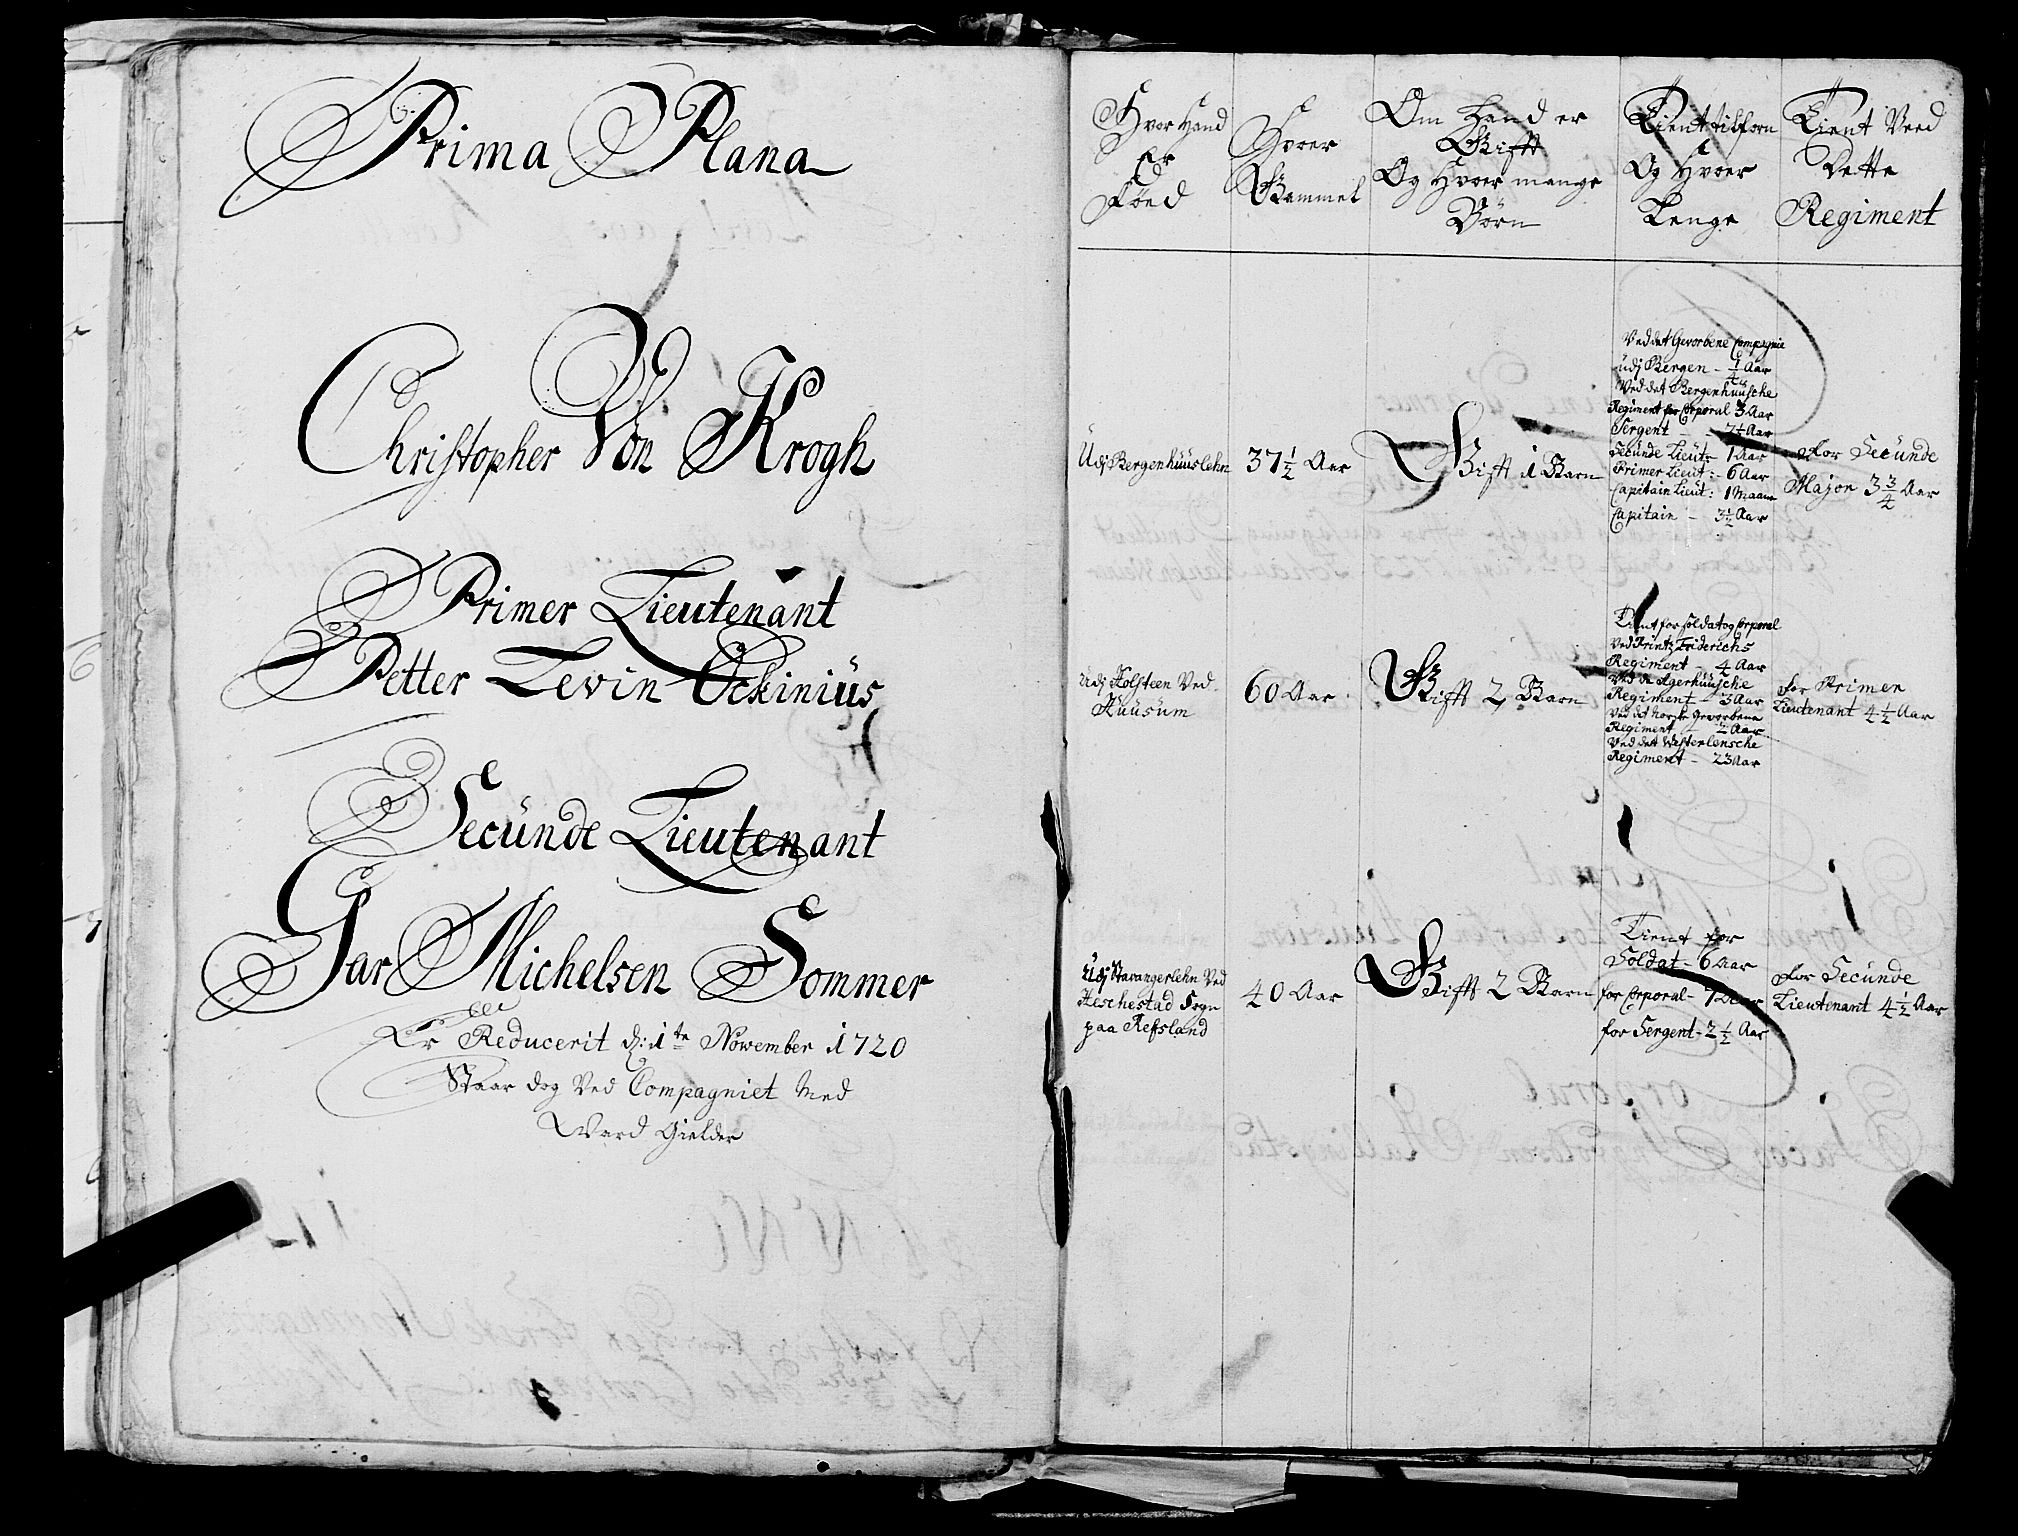 Prima Plana
Christopher Von Krogh
Primer Lieutenant
Petter Levin Ockiniüs
Secünde Lieutenant
Gar Michelsen Sommer
Er Reducerit d: 1te November 1720
Staar dog Ved Compagniet Med
Ward Gielder
Hvor Hand
Er
Föed
Hvoer
Gammel
Om Hand er
Gifft
Og Hvoer mange
Börn
Tient tilforn
Og Hvoer
Lenge
Tient Ved
Dette
Regiment
Udj Bergenhüüslehn
37 1/2 Aar
Gifft 1 Barn
Ved det Gevorbene Compagnie
üdj Bergen - 1/4 Aar
Ved det Bergenhüüsche
Regiment for Corporal 3 Aar
Sergent - 2 1/2 Aar
Secünde Lieut: 1 Aar
Primer Lieut: - 6 Aar
Capitain Lieut: 1 Maane
Capitain - 3 1/2 Aar
For Secünde
Major 3 3/4 Aar
Udj Holsteen Ved
Hüüsüm
60 Aar
Gifft 2 Barn
Tient for Soldat og Corporal
Ved Printz Friderichs
Regiment - 4 Aar
Ved de Agerhüüsche
Regiment - 3 Aar
Ved det Norske Gevorbene
Regiment - 1/2 Aar
Ved det Vesterlensche
Regiment - 23 Aar
For Primer
Lieutenant 4 1/2 Aar
Udj Stavangerlehn Ved
Heschestad Sogn
paa Refsland
40 Aar
Gifft 2 Barn
Tient for
Soldat - 6 Aar
for Corporal - 7 Aar
for Sergent - 2 1/2 Aar
For Secünde
Lieutenant 4 1/2 Aar